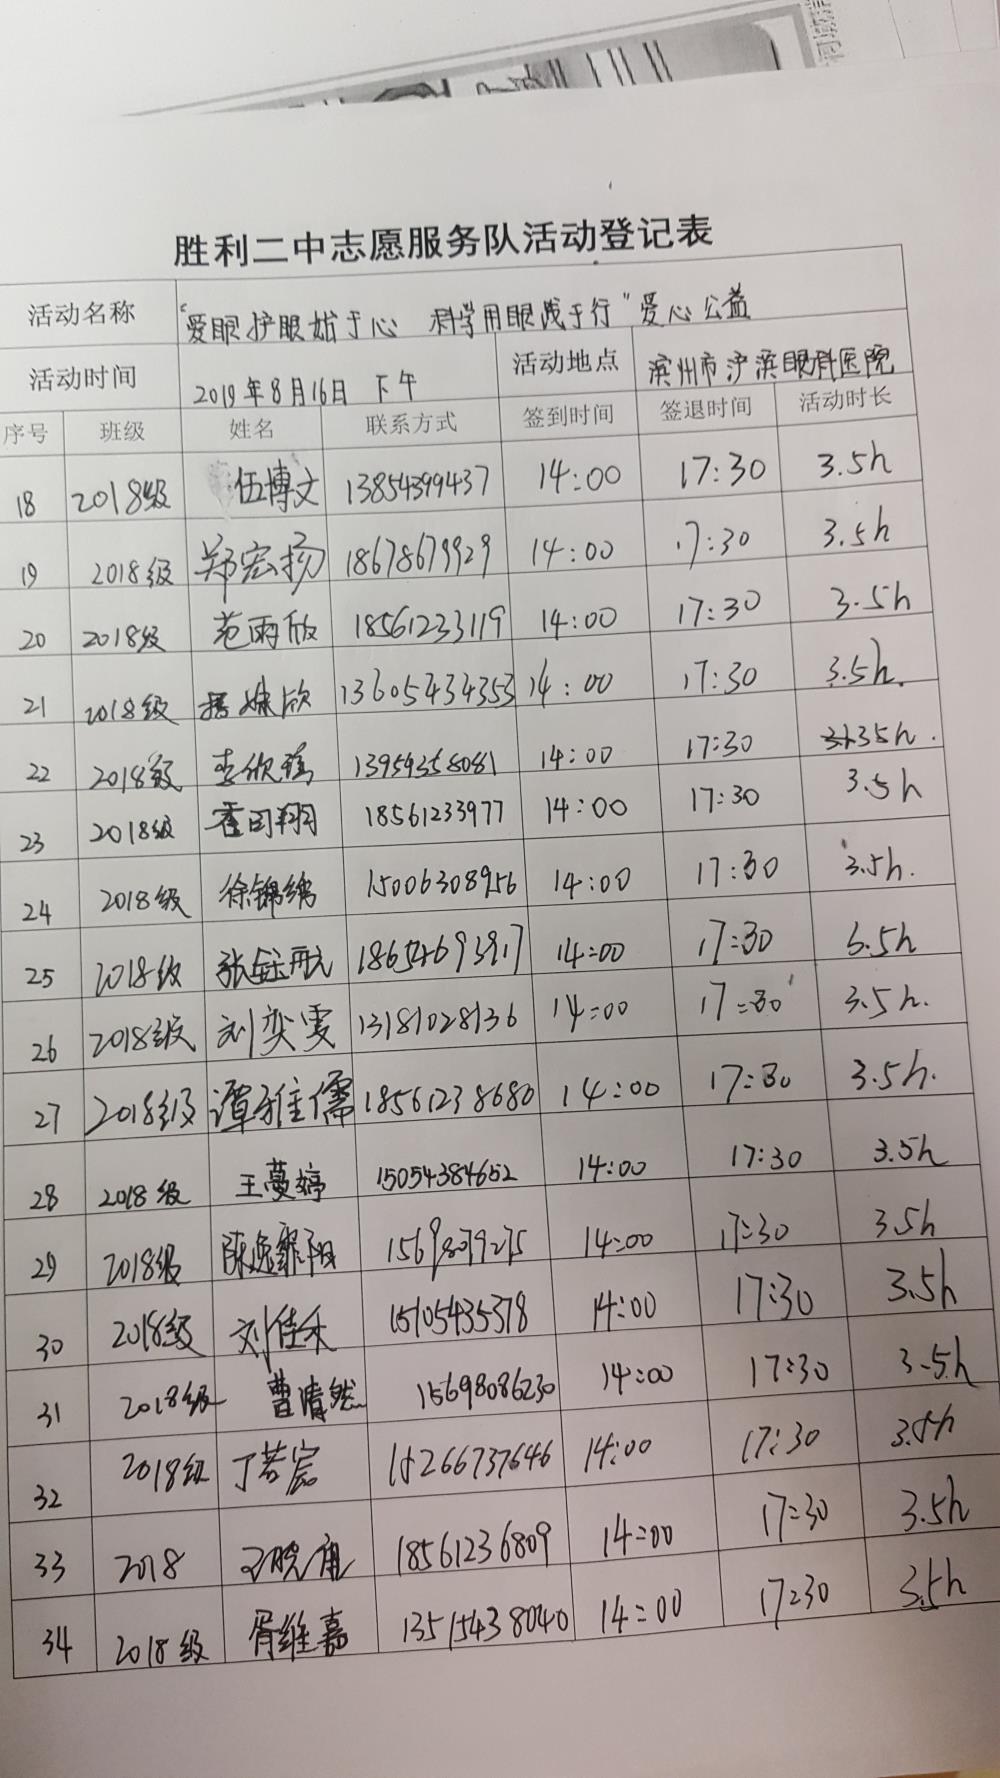 胜利二中志愿服务队活动登记表
活动名称 "爱眼护眼始于心 科学用眼践于行"爱心公益
活动时间 2019年8月16日 下午 活动地点 滨州市沪滨眼科医院
序号 班级 姓名 联系方式 签到时间 签退时间 活动时长
18 2018级 伍博文 13854399437 14:00 17:30 3.5h
19 2018级 郑宏扬 18678679929 14:00 17:30 3.5h
20 2018级 范雨欣 18561233119 14:00 17:30 3.5h
21 2018级 13605434353 14:00 17:30 3.5h.
22 2018级 李欣 13954358081 14:00 17:30 3.5h.
23 2018级 翔 18561233977 14:00 17:30 3.5h
24 2018级 徐锦绣 15006308956 14:00 17:30 3.5h.
25 2018级 张钰 18654693917 14:00 17:30 3.5h
26 2018级 刘奕雯 13181028136 14:00 17:30 3.5h.
27 2018级 谭雅儒 18561238680 14:00 17:30 3.5h.
28 2018级 王蔓婷 15054384652 14:00 17:30 3.5h
29 2018级 陈逸霏阳 15698079275 14:00 17:30 3.5h
30 2018级 刘佳禾 15105435378 14:00 17:30 3.5h
31 2018级 曹清然 15698086230 14:00 17:30 3.5h
32 2018级 丁若宸 15266737646 14:00 17:30 3.5h
33 2018 王晓 18561236809 14:00 17:30 3.5h
34 2018级 胥维嘉 13515438040 14:00 17:30 3.5h